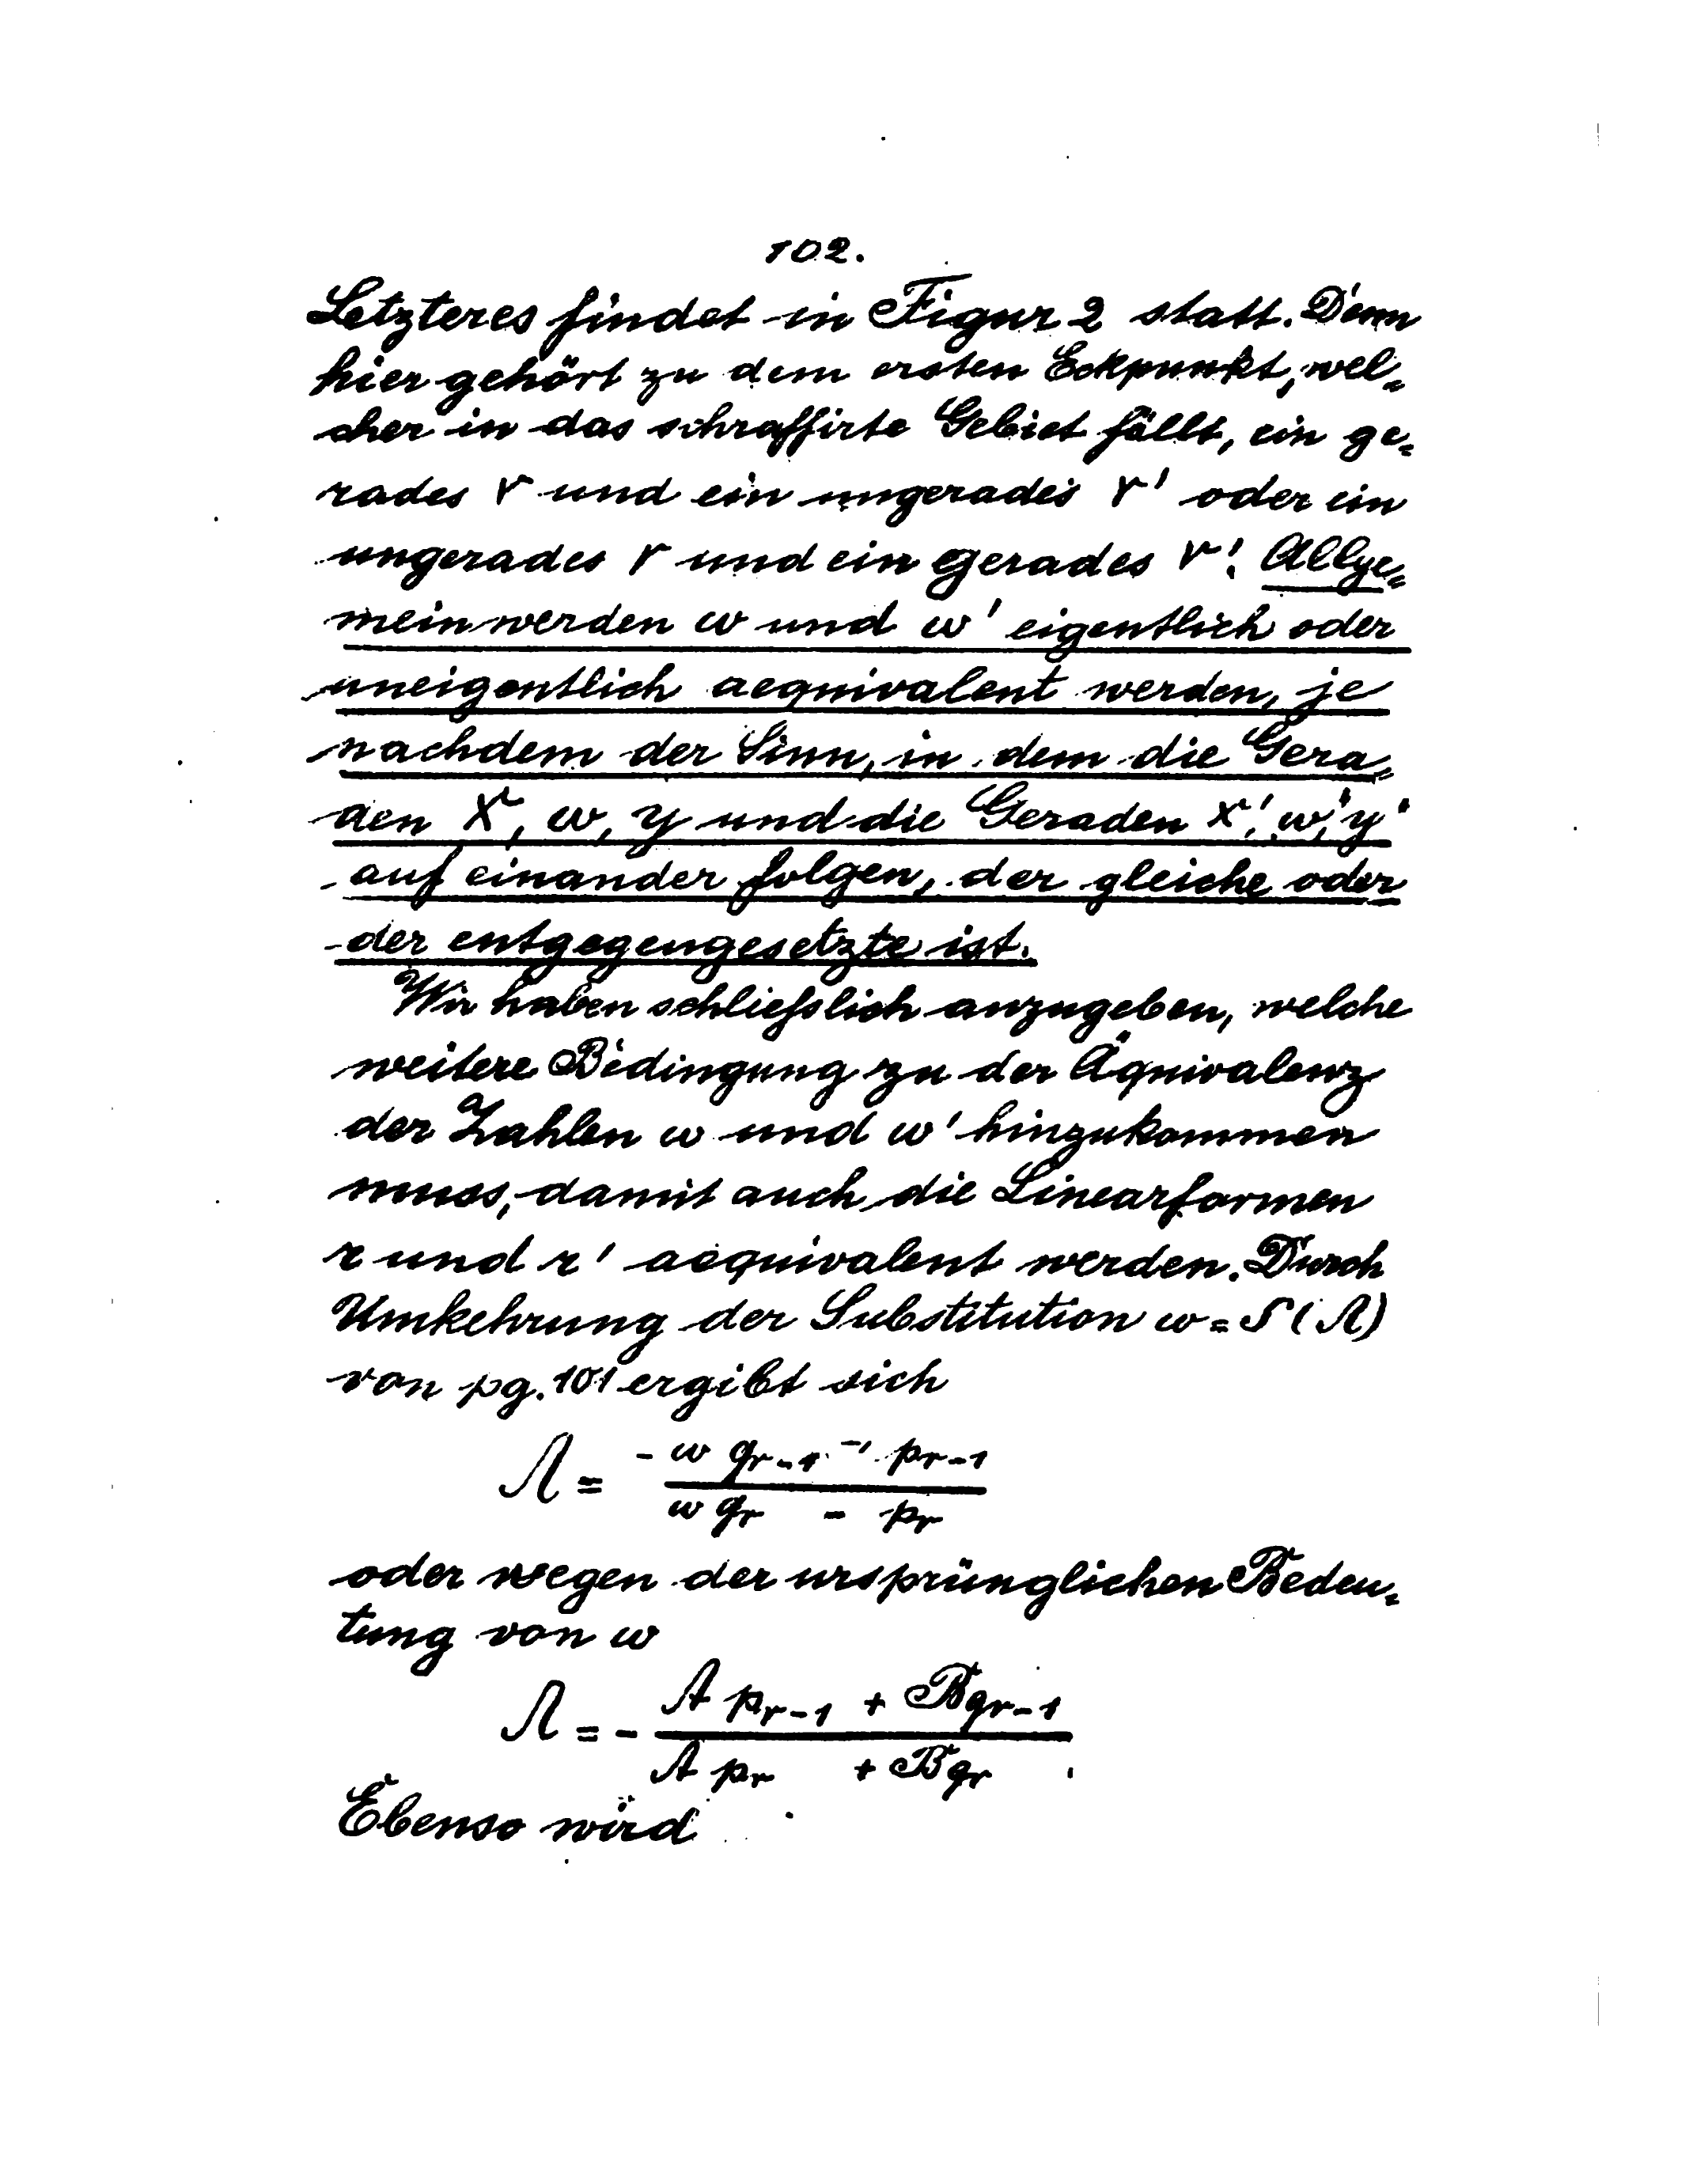 102.
Letzteres findet in Figur 2 statt. Denn
hier gehört zu dem ersten Eckpunkt, wel=
cher in das schraffirte Gebiet fällt, ein ge=
rades r und ein ungerades r' oder ein
ungerades r und ein gerades r'. Allge=
mein werden ω und ω' eigentlich oder
uneigentlich aequivalent werden, je
nachdem der Sinn, in dem die Gera=
den X, ω, y und die Geraden X', ω', y'
auf einander folgen, der gleiche oder
der entgegengesetzte ist.
Wir haben schliesslich anzugeben, welche
weitere Bedingung zu der Äquivalenz
der Zahlen ω und ω' hinzukommen
muss, damit auch die Linearformen
r und r' aequivalent werden. Durch
Umkehrung der Substitution ω = S(Λ)
von pg. 101 ergibt sich
Λ = - (ω q_{r-1} - p_{r-1}) / (ω q_r - p_r)
oder wegen der ursprünglichen Bedeu=
tung von ω
Λ = - (A p_{r-1} + B q_{r-1}) / (A p_r + B q_r).
Ebenso wird